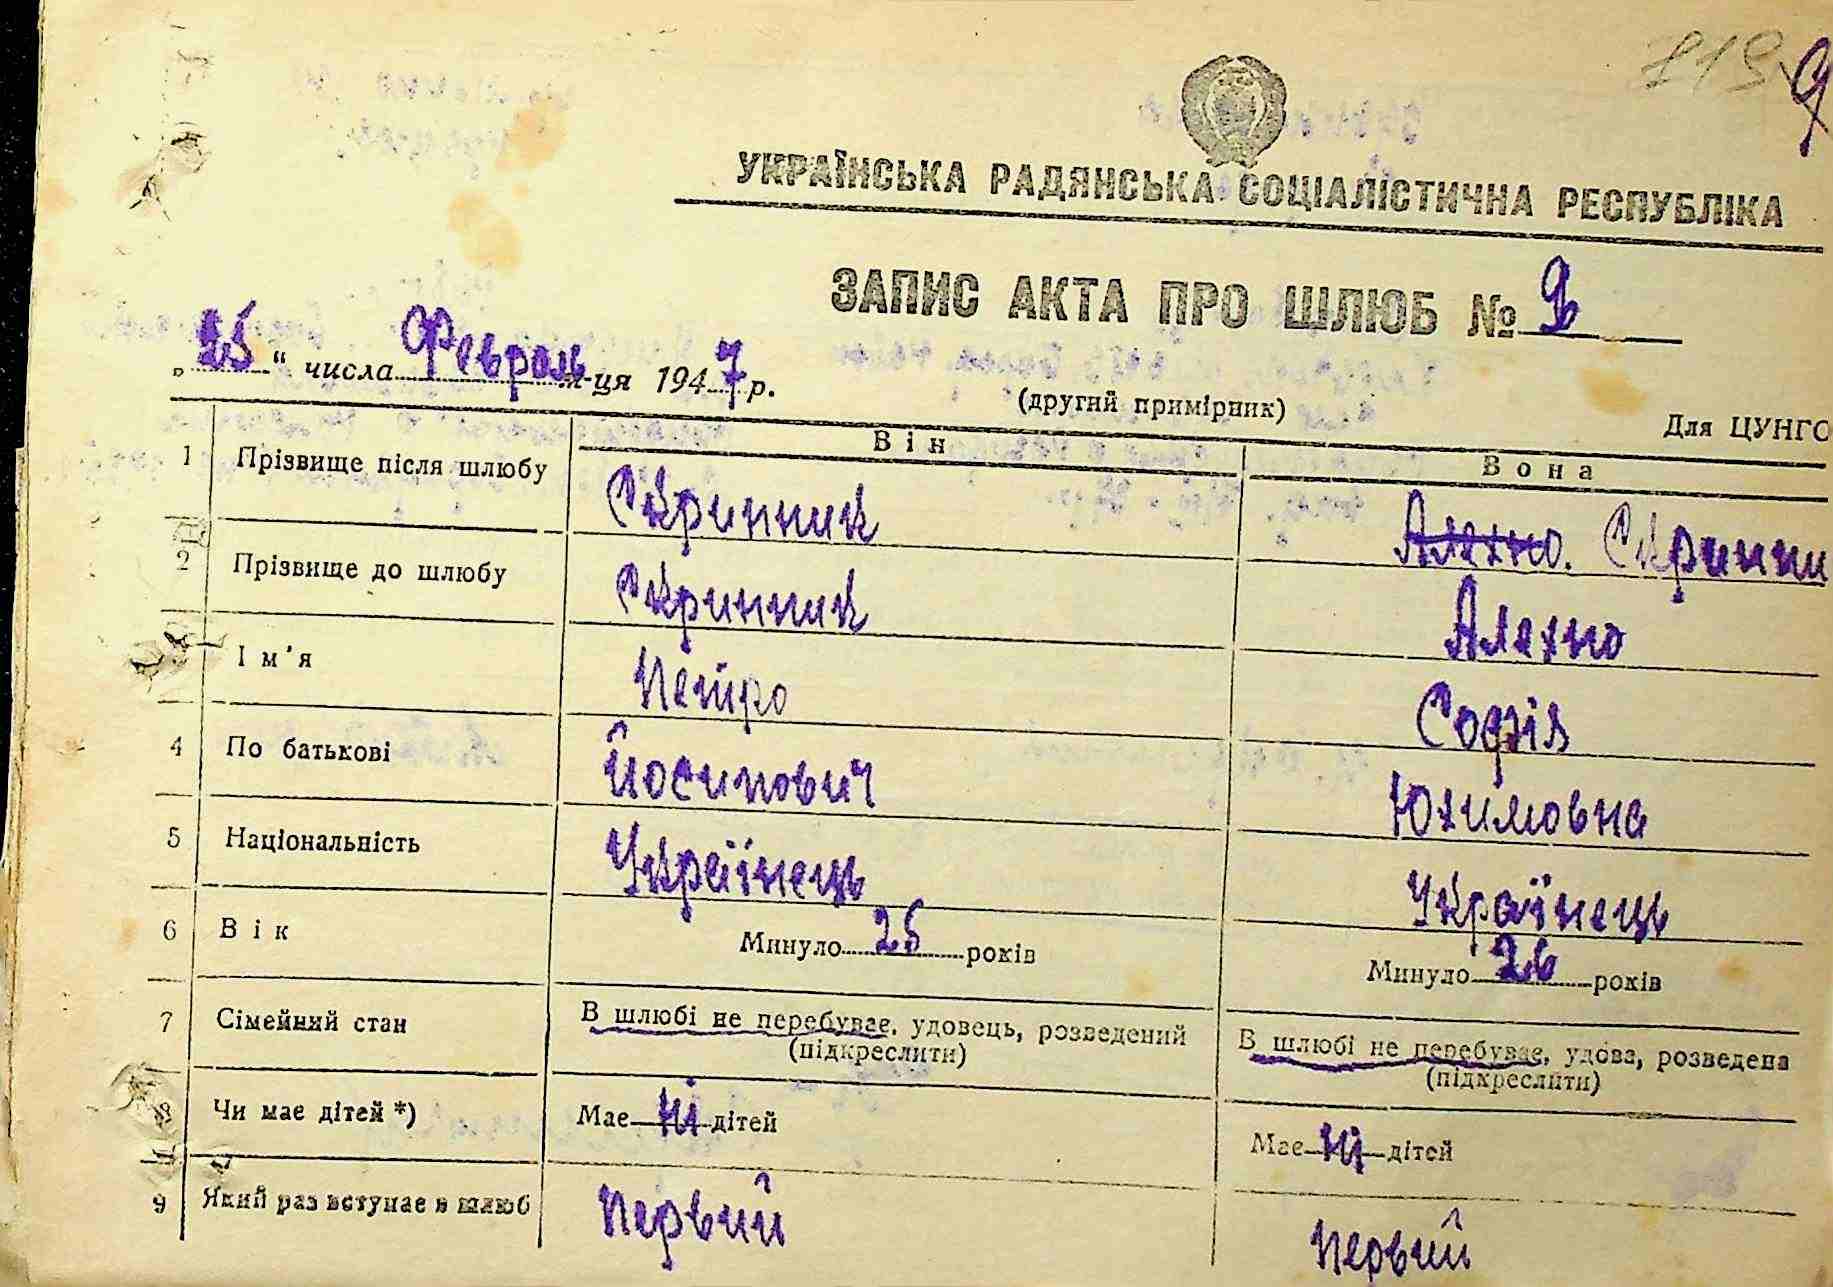 119
9
УКРАЇНСЬКА РАДЯНСЬКА СОЦІАЛІСТИЧНА РЕСПУБЛІКА
ЗАПИС АКТА ПРО ШЛЮБ № 9
„25“ числа Февраль м-ця 1947 р.
(другий примірник)
Для ЦУНГО
Він
Вона
1 Прізвище після шлюбу Скринник Алехно. Скринни
2 Прізвище до шлюбу Скринник Алехно
Ім'я Петро Софія
4 По батькові Йосипович Юхимовна
5 Національність Українець Українець
6 Вік Минуло 25 років Минуло 26 років
7 Сімейний стан В шлюбі не перебуває, удовець, розведений (підкреслити) В шлюбі не перебуває, удова, розведена (підкреслити)
8 Чи має дітей *) Має ні дітей Має ні дітей
9 Який раз вступає в шлюб Первий Первий